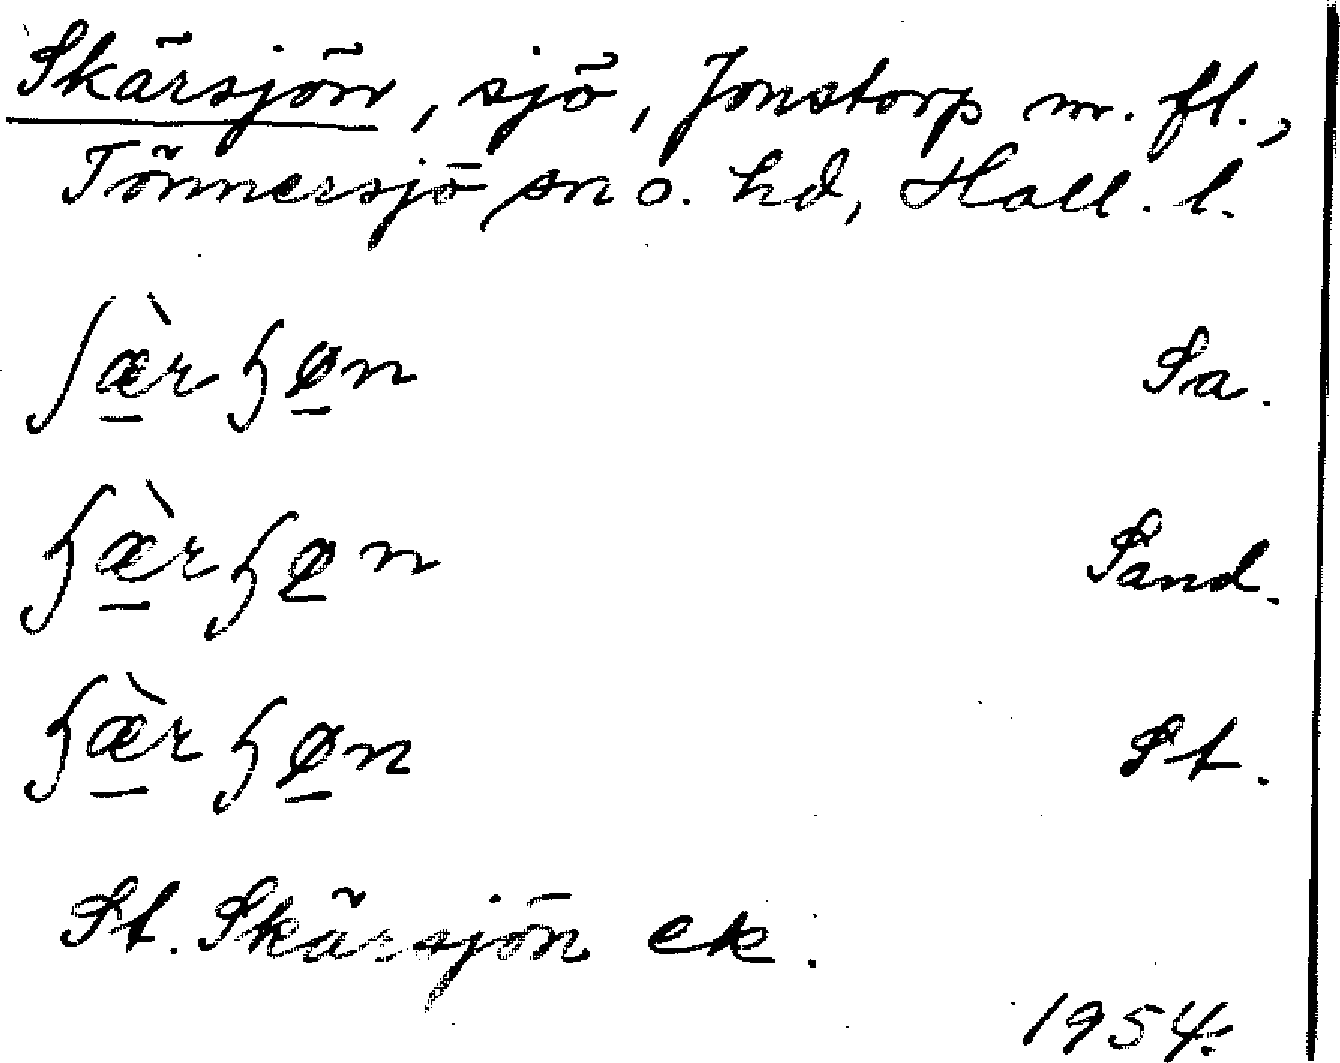 Skärsjön, sjö, Jonstorp m. fl.,
Tönnersjö sn o. hd, Hall. l.
ʃæ̠̀rɧø̠n Sa.
ɧæ̠̀rɧø̠n Sand.
ɧæ̠̀rɧø̠n St.
St. Skärsjön ek.
1954.